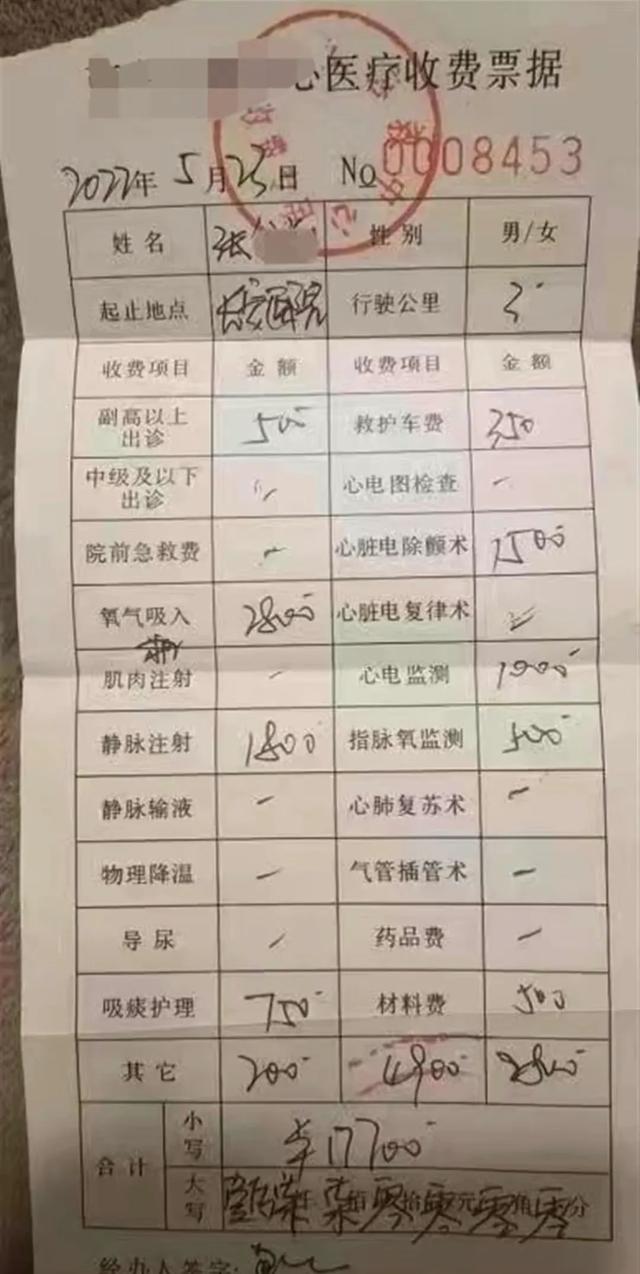 心医疗收费票据
2022年 5月25日 No 0008453
姓名 张 性别 男/女
起止地点 长安医院 行驶公里 3
收费项目 金额 收费项目 金额
副高以上出诊 500 救护车费 350
中级及以下出诊 - 心电图检查 -
院前急救费 - 心脏电除颤术 1500
氧气吸入 2800 心脏电复律术
肌肉注射 - 心电监测 1000
静脉注射 1800 指脉氧监测 500
静脉输液 - 心肺复苏术 -
物理降温 - 气管插管术 -
导尿 - 药品费 -
吸痰护理 750 材料费 500
其它 200 4900
合计 小写 ¥17700
大写 壹 柒 柒 零 零元零角零分
经办人签字: